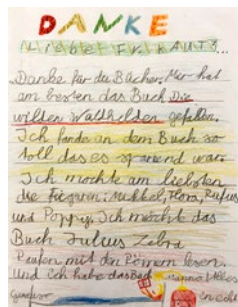 DANKE
Liebe Fr. KAUTZ...
Danke für die Bücher. Mir hat
am besten das Buch Die
wilden Waldhelden gefallen.
Ich fande an dem Buch so
toll das es spanend war.
Ich mochte am liebsten
die Figuren: Mikkel, Flora, Rufus
und Poppy. Ich möchte das
Buch Julius Zebra
Raufen mit den Römern lesen.
und ich habe das Buch